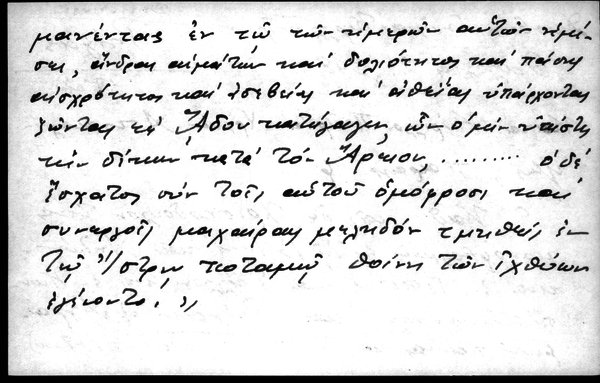 μανέντας ἐν τῷ τῶν ἡμερῶν αὐτῶν ἡμί-
σει, ἄνδρας αἱμάτων καὶ δολιότητος καὶ πάσης
αἰσχρότητος καὶ ἀσεβείας καὶ ἀθεΐας ὑπάρχοντας
ζῶντας εἰς Ἅδου κατήγαγεν, ὧν ὁ μὲν ὑπέστη
τὴν δίκην κατὰ τὸν Ἄρειον, ......... ὁ δὲ
ἔσχατος σὺν τοῖς αὐτοῦ ὁμόφροσι καὶ
συνεργοῖς μαχαίραις μεληδὸν τμηθείς ἐν
τῷ Ἴστρῳ ποταμῷ θοίνη τῶν ἰχθύων
ἐγένοντο. »